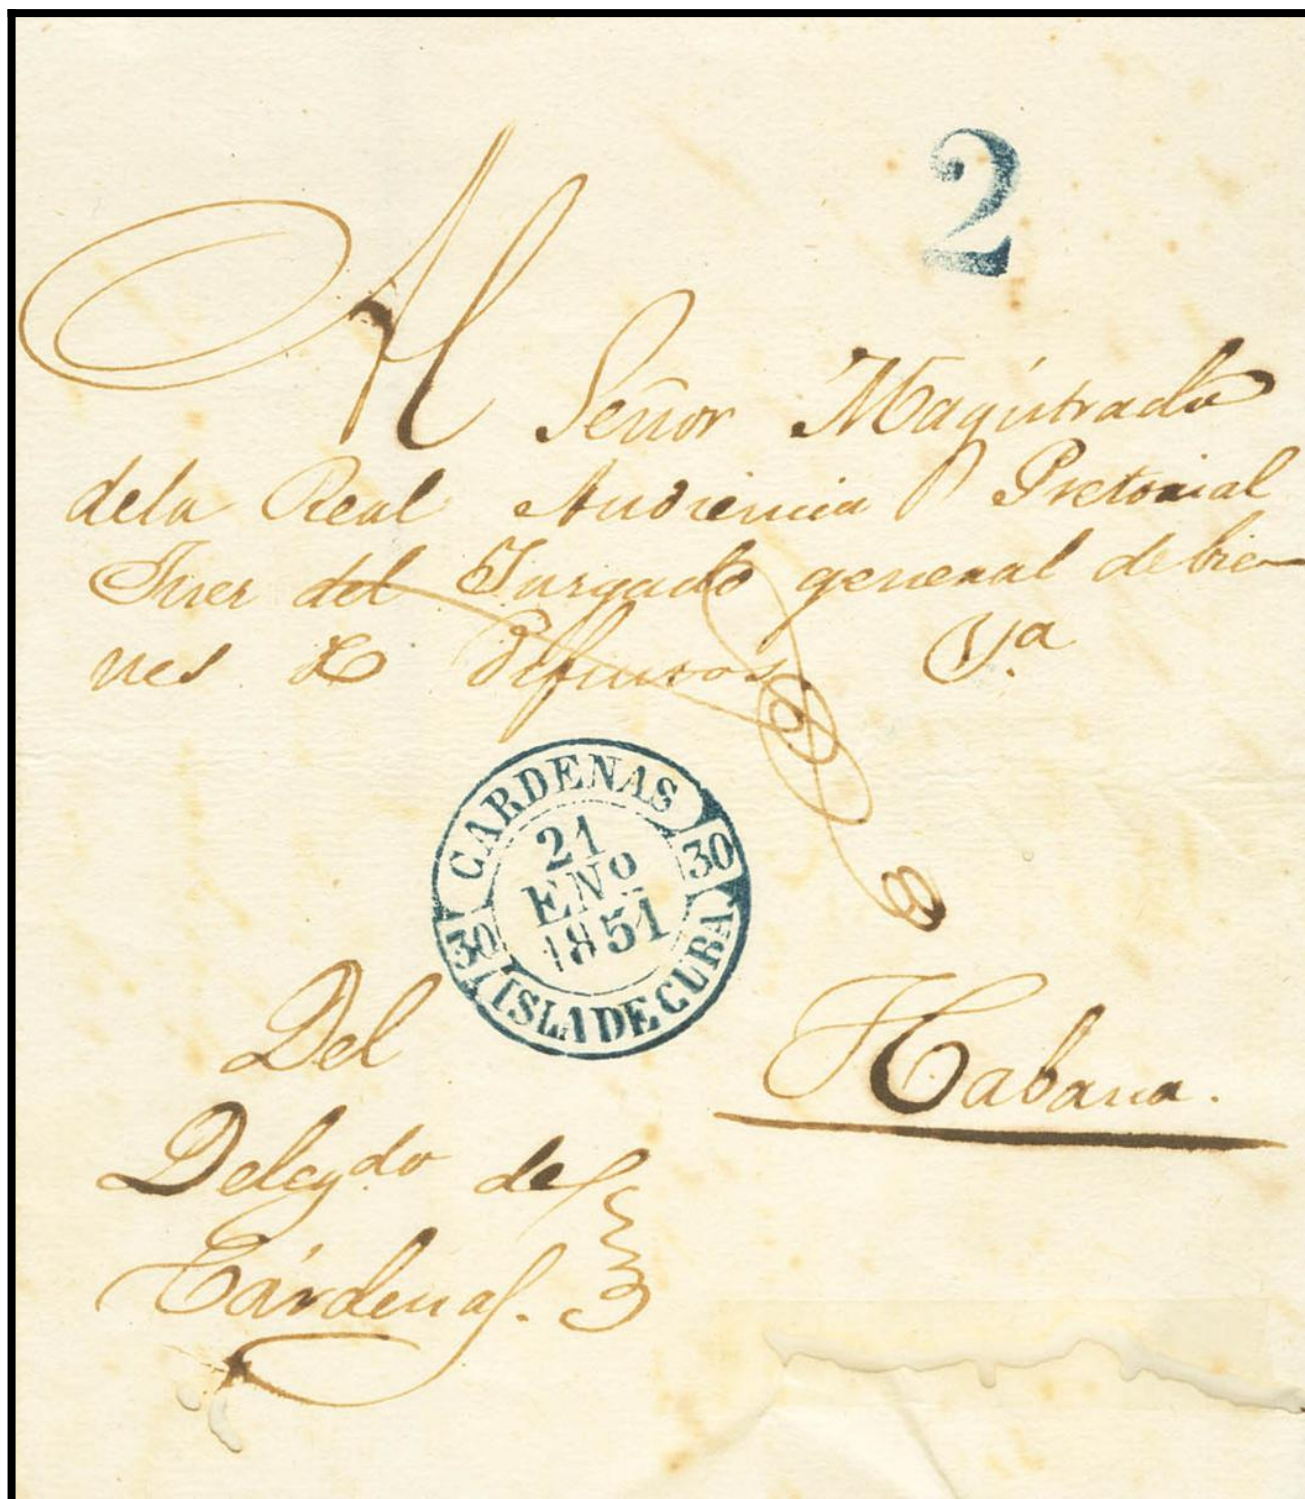 2
Al Señor Magistrado
dela Real Audiencia Pretorial
Juez del Jurgado general de bie-
nes de Difuntos Ya
CARDENAS
30
21
ENO
1851
30
ISLA DE CUBA
Del
Habana.
Delegdo de
Cárdenas.